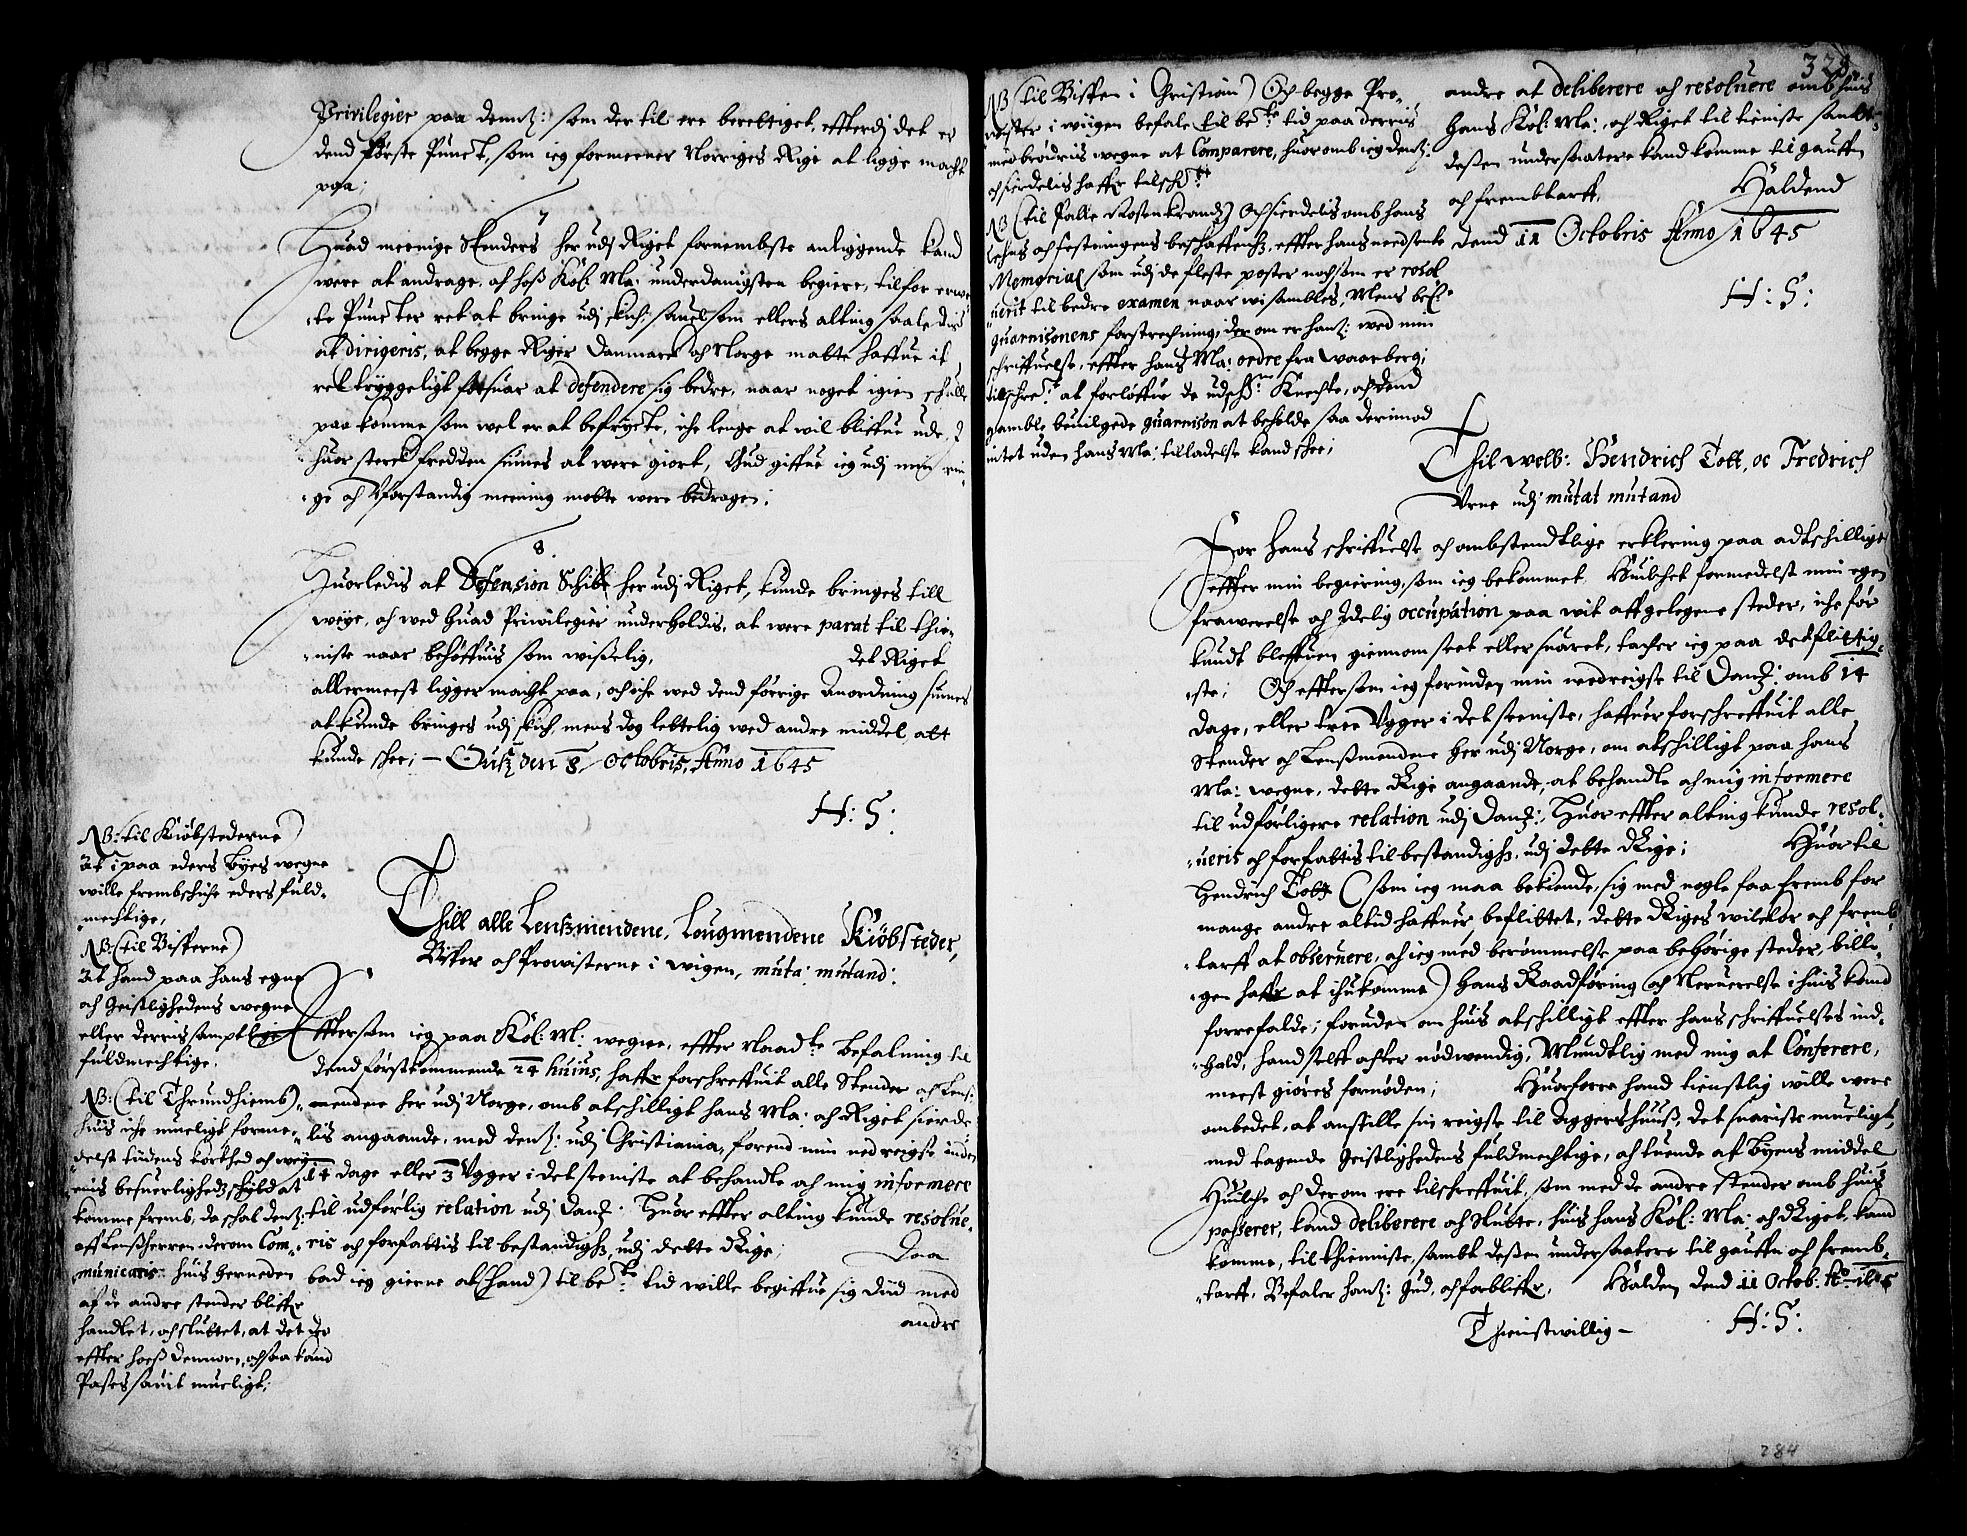 Privilegier paa dennẽ: som der til ere berettiget, effterdj det er
dend første Punct, som ieg formeener Norriges Rige at ligge macht
paa;
7
Huad meenige Stenders her udj Riget fornembste anliggende kand
were at andrage, och hoß Kol: Ma: underdanigsten begiere, tilfor erwe¬
te Puncter ret at bringe udj skich, sauelsom ellers alting saaledis
at dirigeris, at begge Riger Danmarck och Norge motte haffue it
ret tryggeligt forsuar at defendere sig bedre, naar noget igien schulle
paa komme som wel er at befrycte, iche lenge at wil bliffue ude,
huor sterck fredden siunes at were giort, Gud giffue ieg udj min rin¬
ge och Uforstandig meening motte were bedragen;
8.
Huorledis at Defension Schibe her udj Riget, kunde bringes till
weye, och wed huad Priwilegier underholdis, at were parat til thie¬
niste naar behøffuis som wißelig, det Riget
allermeest ligger macht paa, och iche wed dend forrige Anordning siunes
at kunde bringes udj skich, mens dog lettelig wed andre middel, alt
kunde schee; — den 8 Octobris, Anno 1645
H: S:
NB: til Kiøbstederne)
At i paa eders Byes wegne
wille frembschiche eders fuld¬
mechtige,
NB (til Bisperne)
At hand paa hans egne
och Geistlighedens wegne
eller derris samptlige
fuldmechtige.
NB: (til Thrundhiemb)
huis iche mueligt forme¬
delst tidens korthed och wey¬
enis besuerlighed schyld at
komme fremb, da schal denẽ:
aff Lenßherren derom Com¬
municeris huis herneden
af de andre stender bliffr
handlet, och sluttet, at det der
effter hoeß dennom, och saa kand
Paßes sauit mueligt;
Thill alle Lenßmendene, Lougmendene Kiøbsteder,
Bisper och Prowisterne i wigen, muta: mutand:
Effter som ieg paa Kol: M: wegne, effter Naadte Befalning til
dend førstkommende 24 huius, haffr forschreffuit alle Stender och Lens¬
mendene her udj Norge, omb atschilligt hans Ma: och Riget sierde¬
lis angaande, med denẽ: udj Christiania, forend min nedreigse inden
14 dage eller 3 Ugger i det seeniste at behandle och mig informere
til udførlig relation udj Danẽ: Huor effter alting kunde resolue¬
ris och forfattis til bestandighed, udj dette Rige; Daa
bad ieg gierne at (hand) til bete: tid wille begiffue sig did med
andre
328
NB (til Bispen i Christian) Och begge Pro¬
wister i wiigen befale til bete tid paa derris
medbrødris wegne at Comparere, huor omb ieg denẽ:
och sierdelis haffr tilschrt:
NB (til Palle Rosenkrandẽ) Och sierdelis omb hans
Lehns och festningens beschaffenhed, effter hans needsente
Memorial som udj de fleste poster noch som er resol
uerit til bedre examen naar wi sambles, Mens bete:
guarnisonens forstrechning, der om er hanẽ: wed min
schriffuelse, effter hans Ma: ordre fra Waarberg;
tilschret: at forløffue de udschne: Knechte, och dend
gamble beuilgede guarnison at beholde saa derimod
intet uden hans Ma: tilladelse kand schee;
andre at deliberere och resoluere omb huis
Hans Kol: Ma: och Riget til tieniste sambt
deßen undersaatere kand komme til gauffn
och frembtarff, Haldend
dend 11 Octobris Anno 1645
H: S:
Thil welb: Hendrich Tott, oc Fredrich
Urne udj mutat mutand
For hans schriffuelse och ombstendtlige erklering paa adtschilligt
effter min begiering, som ieg bekommet. Huilchet formedelst min egen
frawerelse och Idelig occupation paa wit affgelegene steder, iche før
kundt bleffuen giennom seet eller suaret, tacher ieg paa det flittig¬
ste; Och effter som ieg forinden min nedreigse til Danẽ: omb 14
dage, eller tree Ugger i det seeniste, haffuer forschreffuit alle
Stender och Lenßmendene her udj Norge, om atschilligt paa hans
Ma: wegne, dette Rige angaande, at behandle och mig informere
til udførligere relation udj Danẽ:, Huor effter alting kunde resol¬
ueris och forfattis til bestandighed, udj dette Rige; Huor til
Hendrich Tott (som ieg maa bekiende, sig med nogle faa fremb for
mange andre altid haffuer beflittet, dette Riges wilckor och fremb¬
tarff at obseruere, och ieg med berømmelse paa behørige steder, bille¬
gen haffr at ihukomme) hans Raadføring och Neruerelse i huis kand
forrefalde; foruden om huis atschilligt effter hans schriffuelses ind¬
hald, hand selff achter nødwendig, Mundtlig med mig at Conferere,
meest giøres fornøden; Huorforre hand tienstlig wille were
ombedet, at anstille sin reigse til Aggershuuß, det snariste mueligt,
med tagende Geistlighedens fuldmechtige, och tuende af Byens middel
Huilche och der om ere tilschreffuit, som med de andre stender omb huis
passerer, kand deliberere och slutte, huis hans Kol: Ma: och Riget, kand
komme, til thieniste, sambt deßen undersaatere til gauffn och fremb¬
tarff. Befaler hanẽ: Gud, och forbliffr. Halden dend 11 Octob: Ao 1645
Thienstwillig — H: S:
284